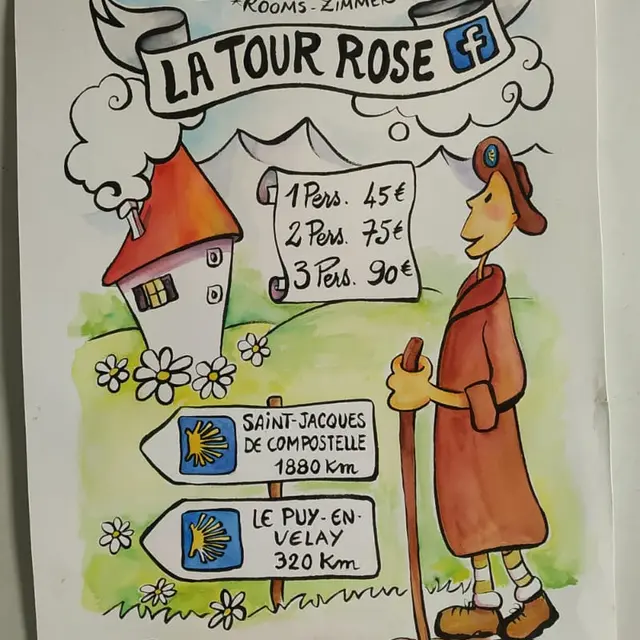 *ROOMS-ZIMMER
LA TOUR ROSE f
1 Pers. 45€
2 Pers. 75€
3 Pers. 90€
SAINT-JACQUES
DE COMPOSTELLE
1880 Km
LE PUY-EN-
VELAY
320 Km